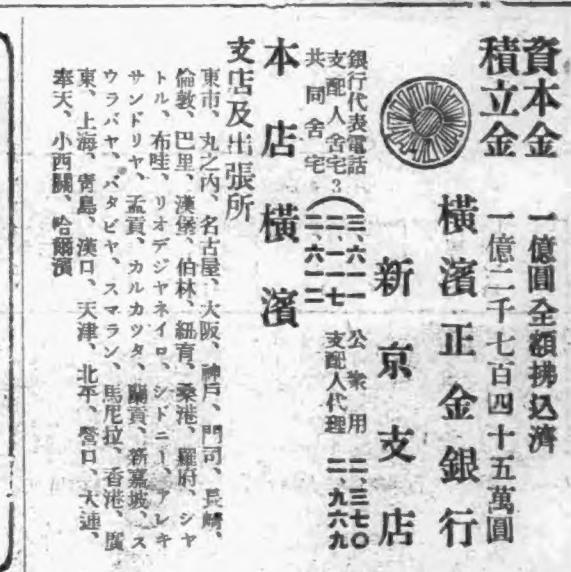 資本金 一億圓全額拂込濟
積立金 一億二千七百四十五萬圓
橫濱正金銀行
新京支店
銀行代表電話 三、六一一 公衆用 二、三七〇
支配人舍宅 3 二、一一七 支配人代理 二、九六九
共同舍宅 二、六一二
本店 橫濱
支店及出張所
東市、丸之内、名古屋、大阪、神戶、門司、長崎、
倫敦、巴里、漢堡、伯林、紐育、桑港、羅府、シヤ
トル、布哇、リオデジヤネイロ、シドニー、アレキ
サンドリヤ、孟買、カルカツタ、蘭貢、新嘉坡、ス
ウラバヤ、バタビヤ、スマラン、馬尼拉、香港、廣
東、上海、青島、漢口、天津、北平、營口、大連、
奉天、小西關、哈爾濱